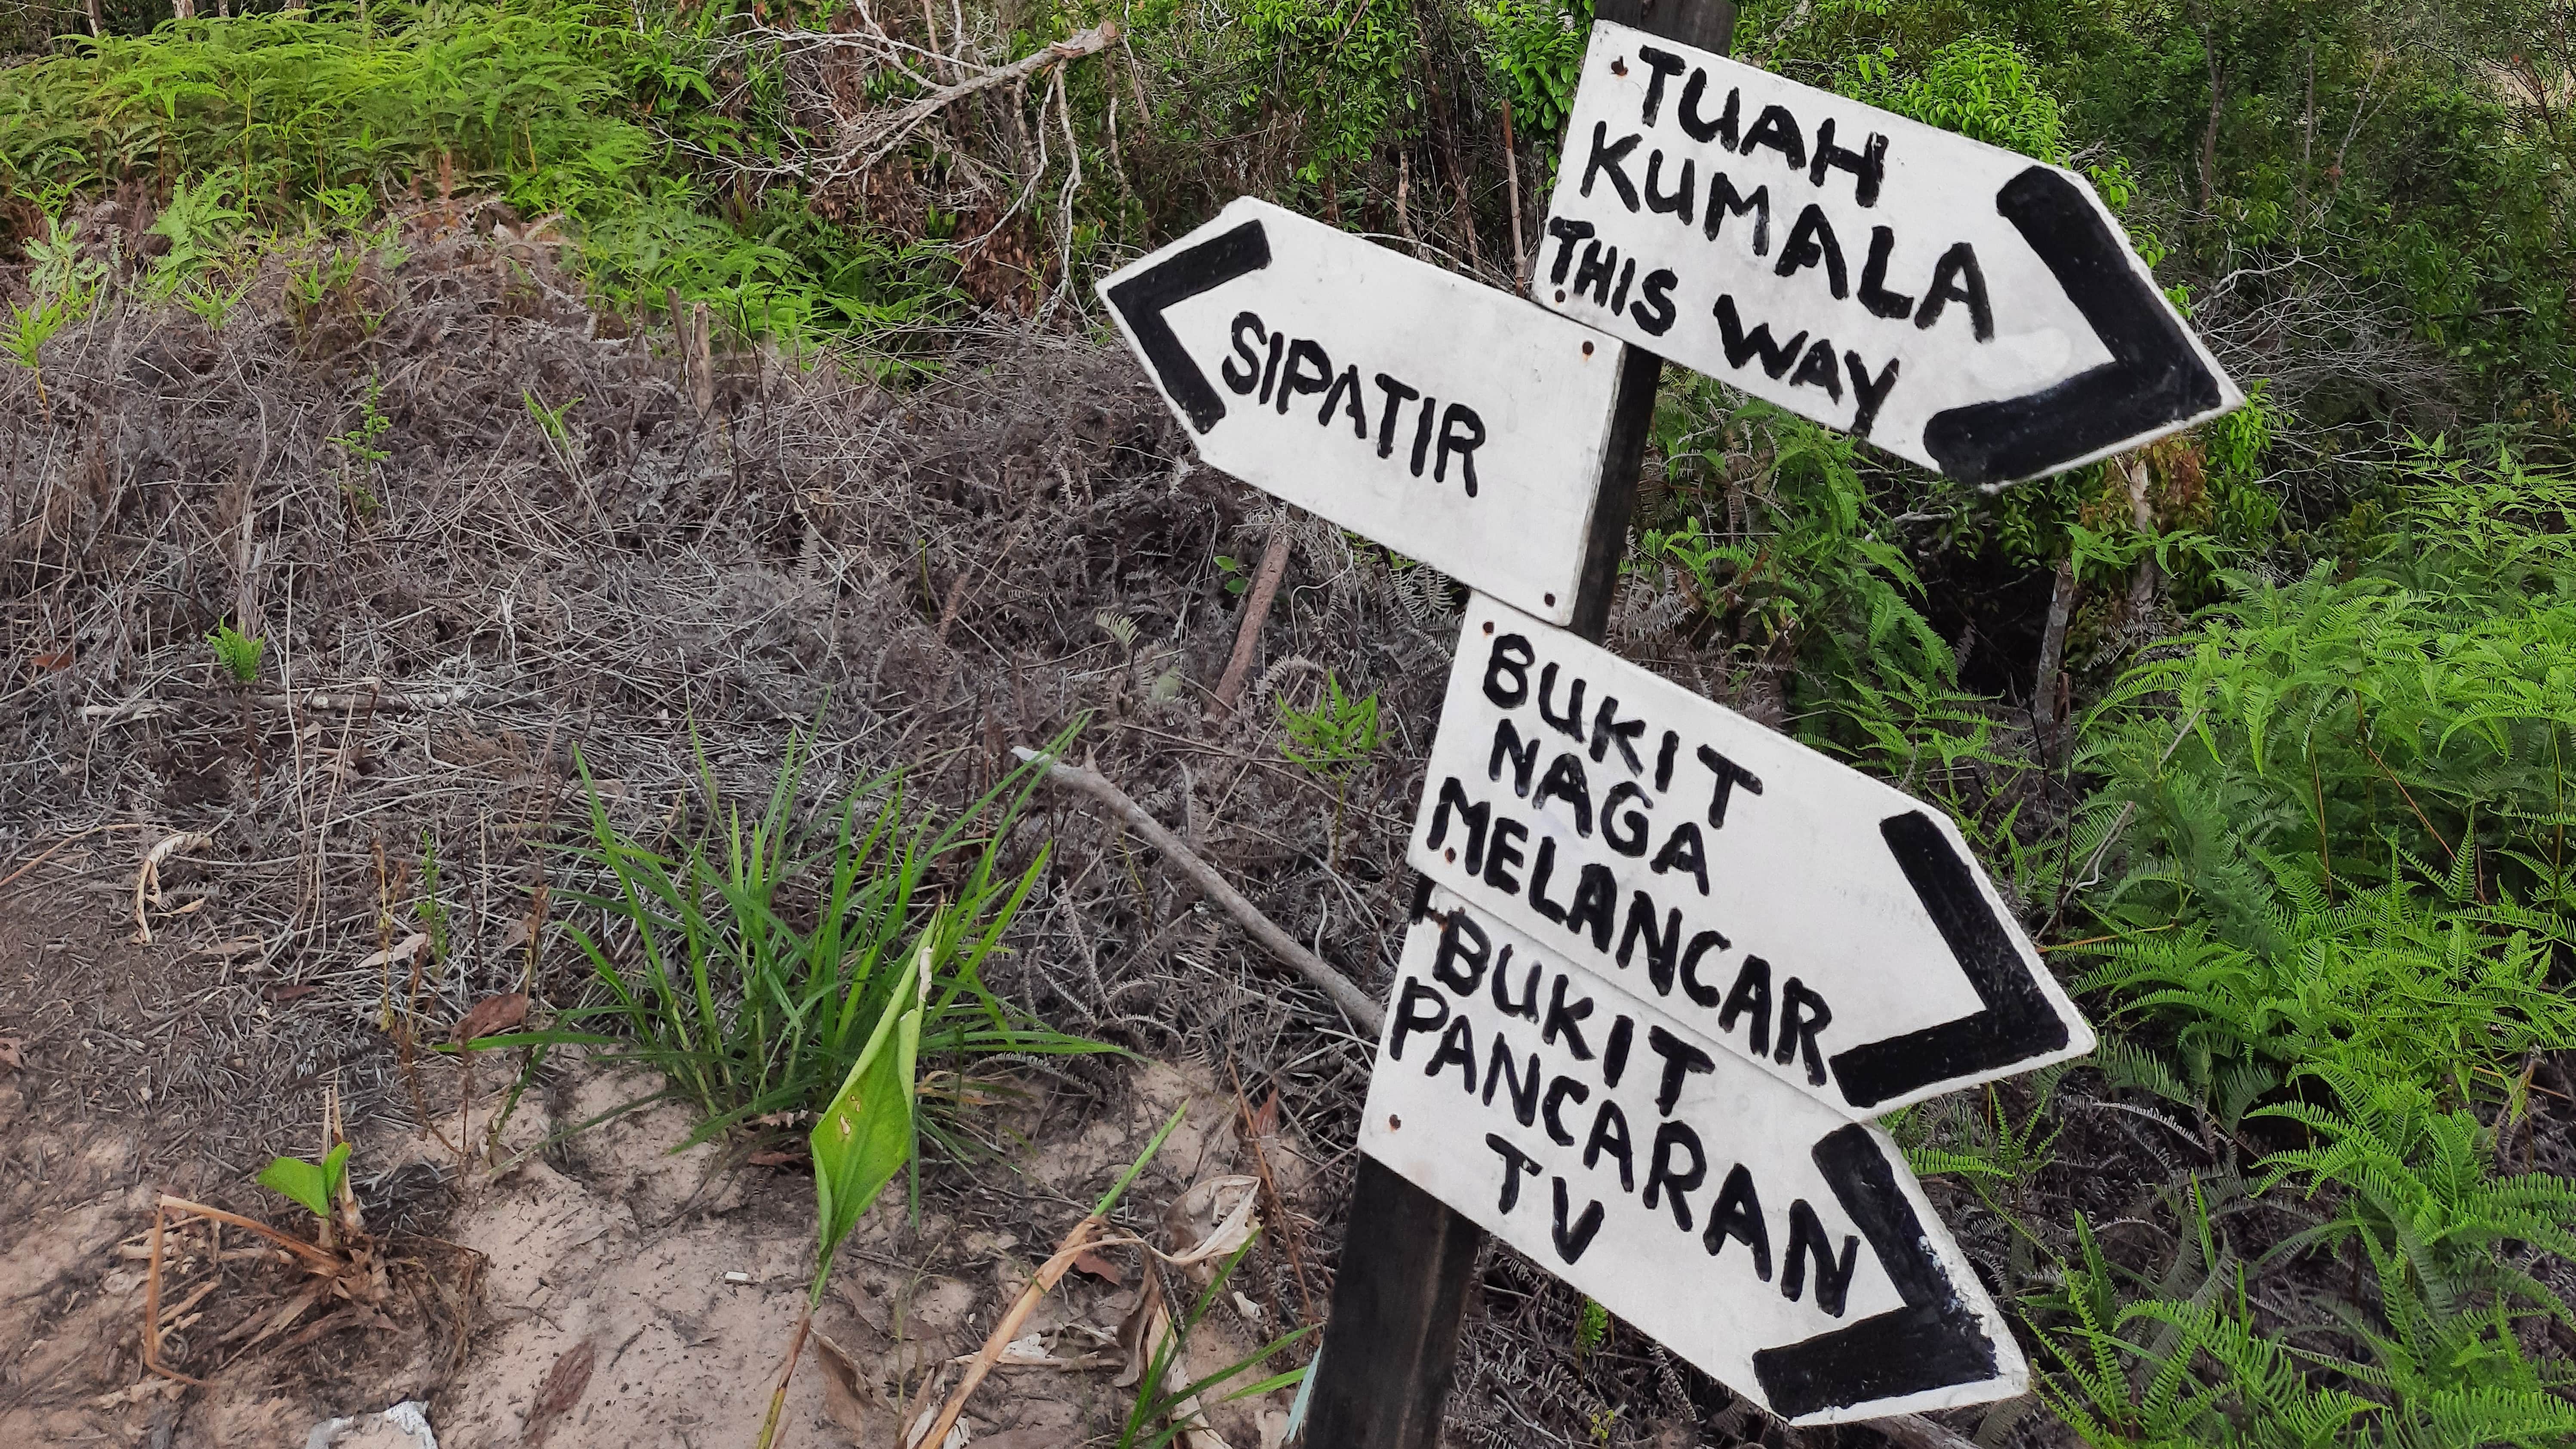 TUAH
KUMALA
THIS WAY
SIPATIR
BUKIT
NAGA
MELANCAR
BUKIT
PANCARAN
TV